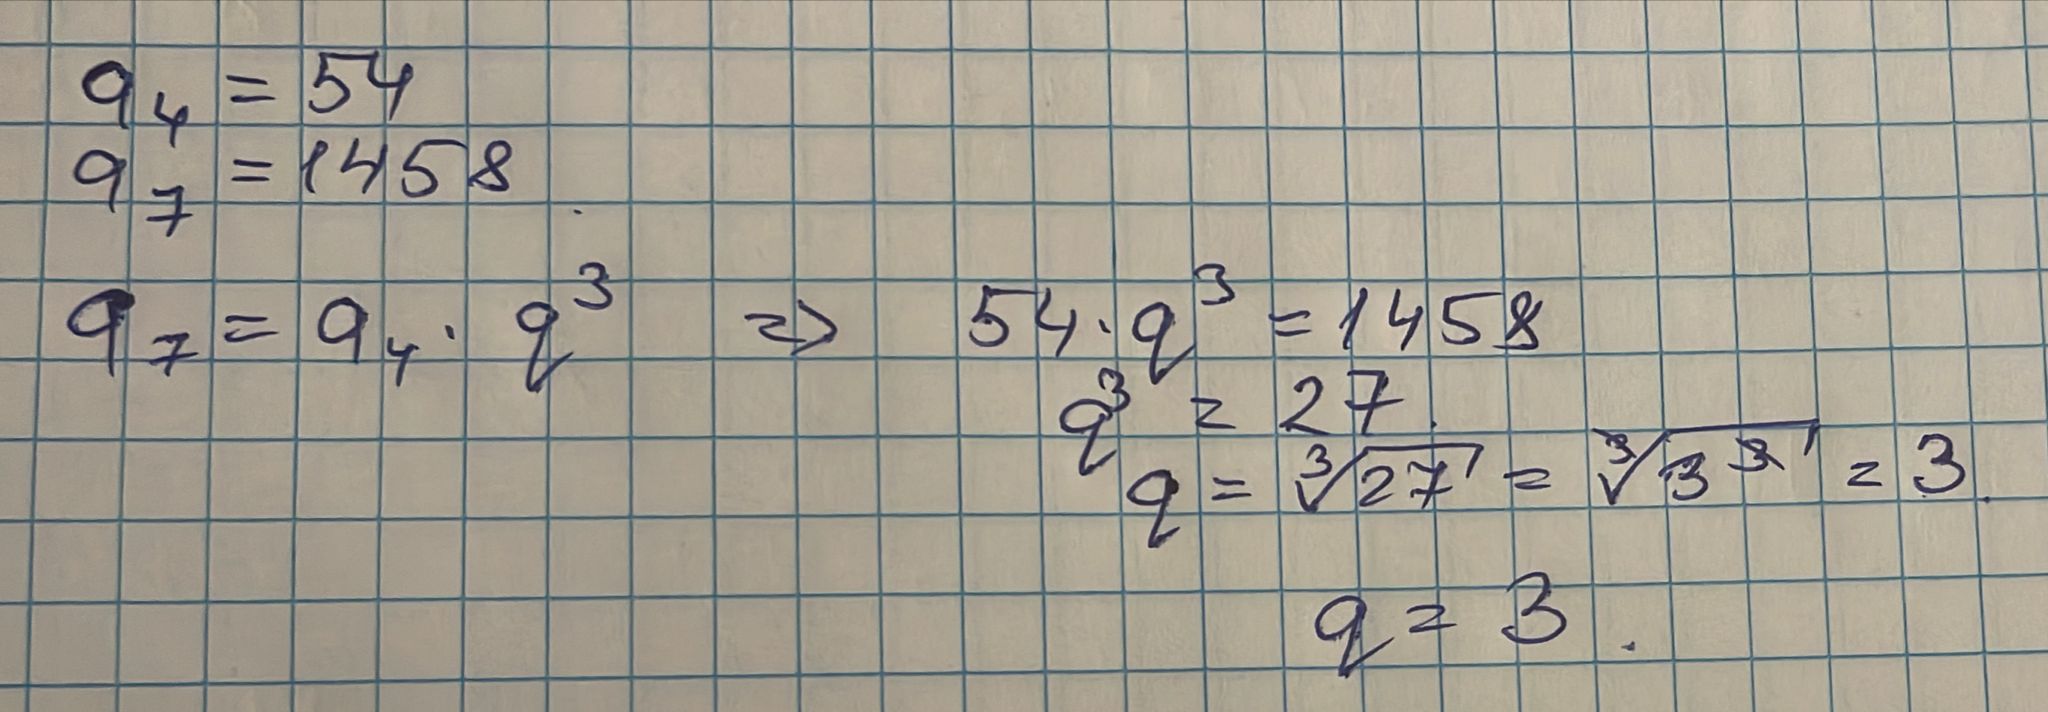 a₄ = 54
a₇ = 1458
a₇ = a₄ · q³ => 54 · q³ = 1458
q³ = 27
q = ∛27 = ∛3³ = 3.
q = 3.